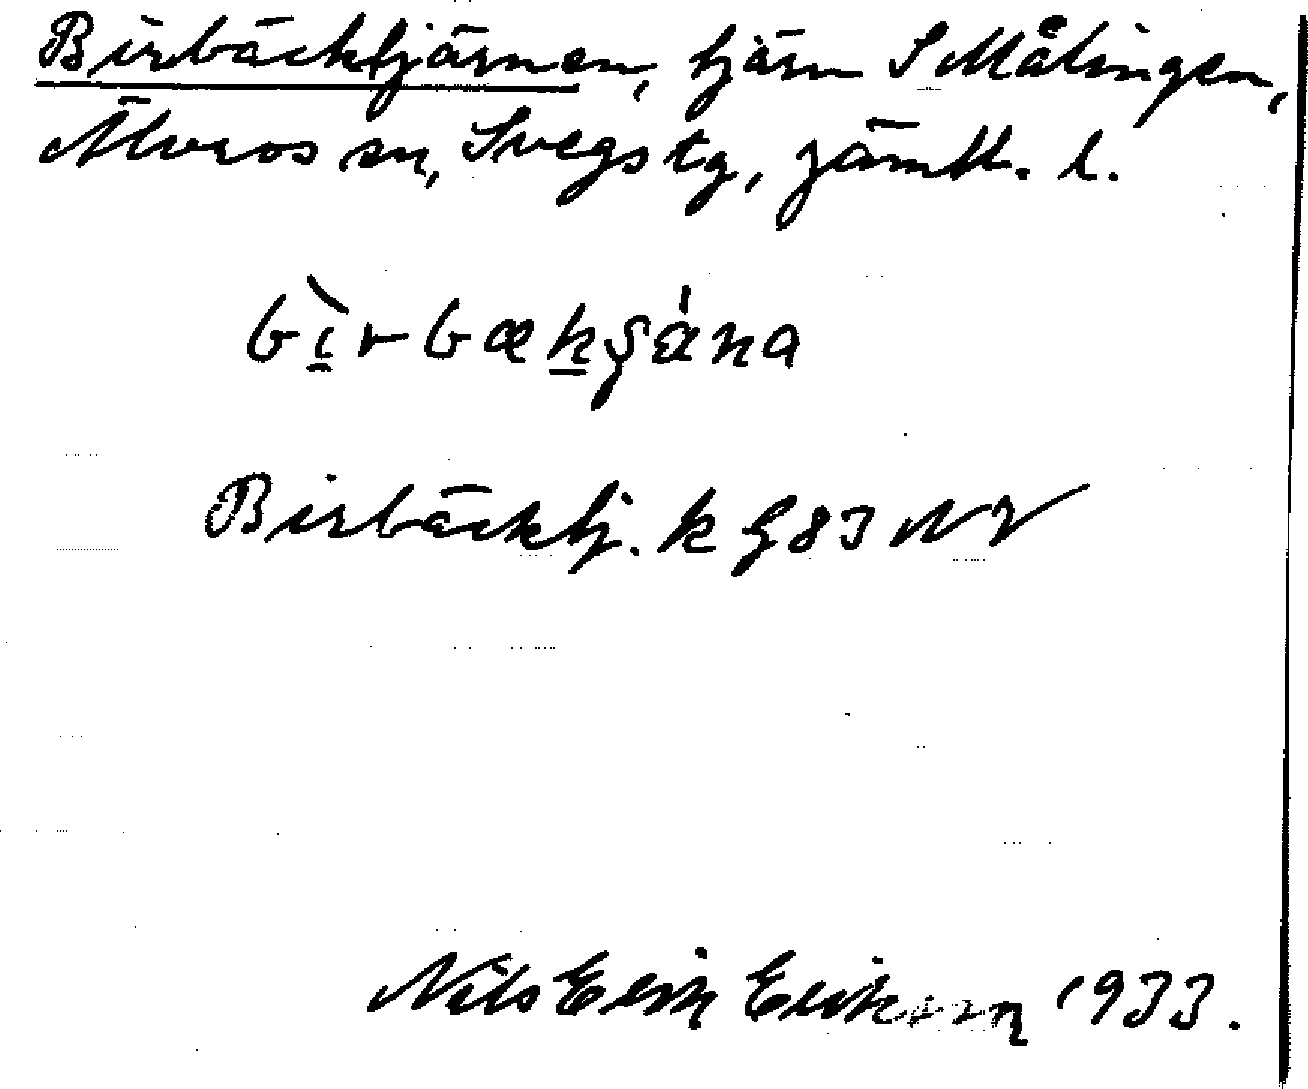 Birbäcktjärnen, tjärn S Målingen,
Älvros sn, Svegs tg, Jämtl. l.
Birbäcktj. k G83 NV
Nils Erik Erikson 1933.